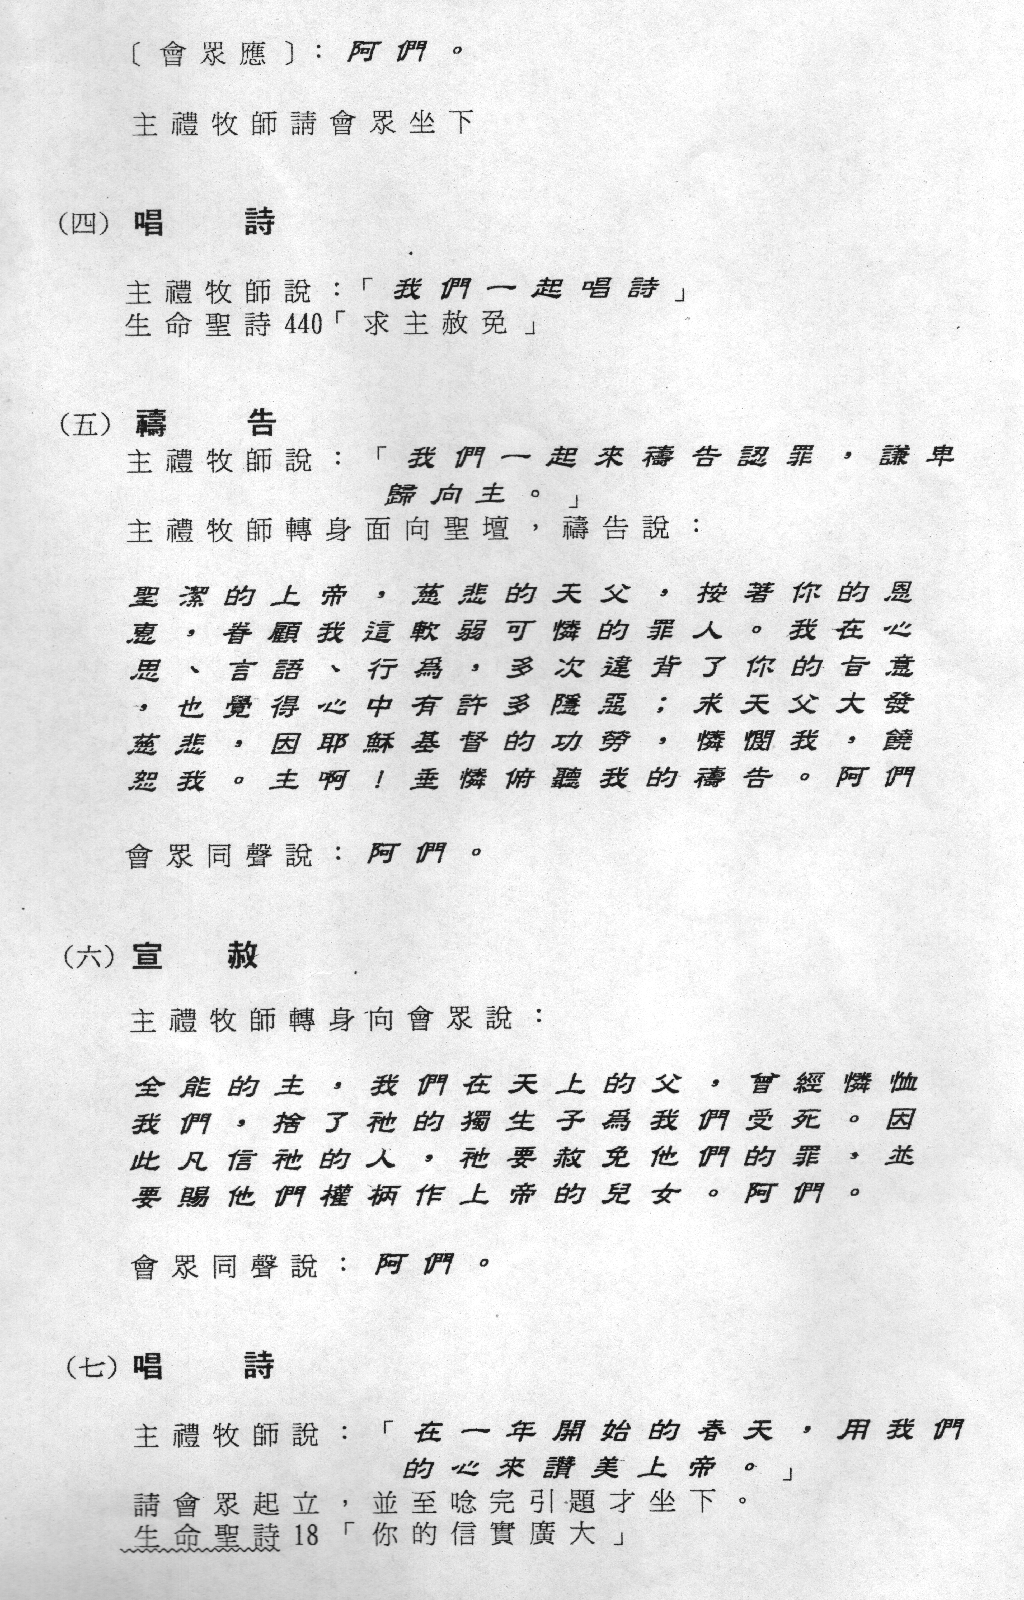 〔會眾應〕：阿們。
主禮牧師請會眾坐下
（四）唱　詩
主禮牧師說：「我們一起唱詩」
生命聖詩440「求主赦免」
（五）禱　告
主禮牧師說：「我們一起來禱告認罪，謙卑
歸向主。」
主禮牧師轉身面向聖壇，禱告說：
聖潔的上帝，慈悲的天父，按著你的恩
惠，眷顧我這軟弱可憐的罪人。我在心
思、言語、行為，多次違背了你的旨意
，也覺得心中有許多隱惡；求天父大發
慈悲，因耶穌基督的功勞，憐憫我，饒
恕我。主啊！垂憐俯聽我的禱告。阿們
會眾同聲說：阿們。
（六）宣　赦
主禮牧師轉身向會眾說：
全能的主，我們在天上的父，曾經憐恤
我們，捨了祂的獨生子為我們受死。因
此凡信祂的人，祂要赦免他們的罪，並
要賜他們權柄作上帝的兒女。阿們。
會眾同聲說：阿們。
（七）唱　詩
主禮牧師說：「在一年開始的春天，用我們
的心來讚美上帝。」
請會眾起立，並至唸完引題才坐下。
生命聖詩18「你的信實廣大」